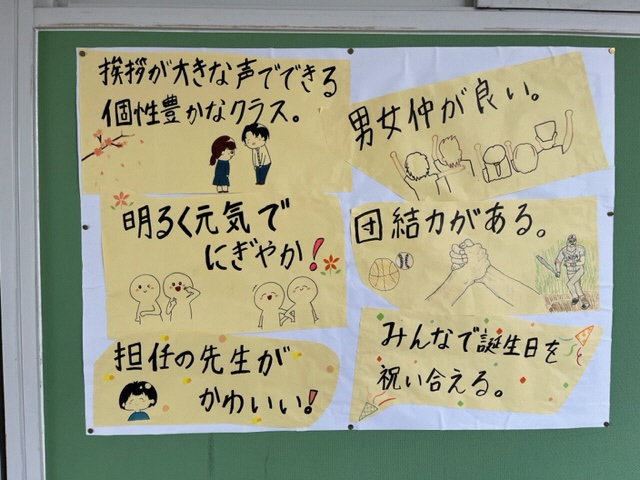 挨拶が大きな声でできる
個性豊かなクラス。
明るく元気で
にぎやか!
担任の先生が
かわいい!
男女仲が良い。
団結力がある。
みんなで誕生日を
祝い合える。